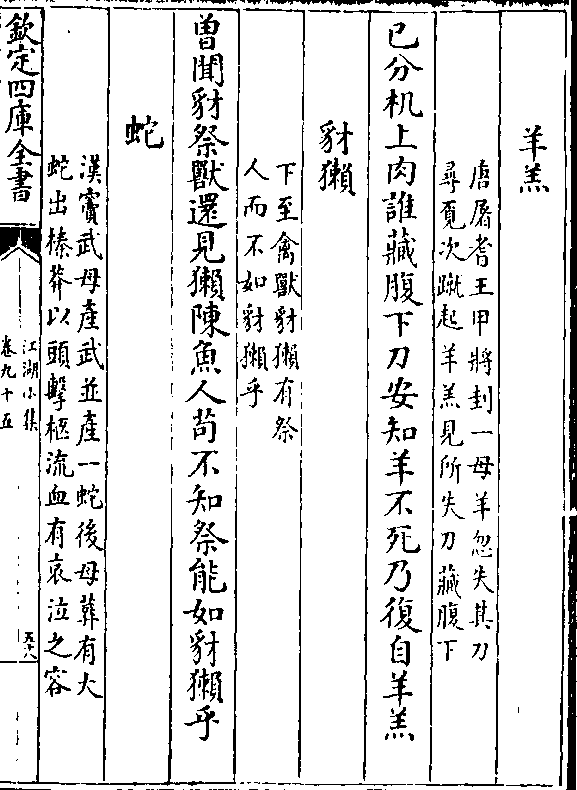 羊羔
唐屠者王甲將刲一母羊忽失其刀
尋覓次蹴起羊羔見所失刀藏腹下
已分机上肉誰藏腹下刀安知羊不死乃復自羊羔
豺獺
下至禽獸豺獺有祭
人而不如豺獺乎
曽聞豺祭獸還見獺陳魚人苟不知祭能如豺獺乎
蛇
漢竇武母產武並產一蛇後母葬有大
蛇出榛莽以頭擊柩流血有哀泣之容
欽定四庫全書
江湖小集
卷九十五
五十八